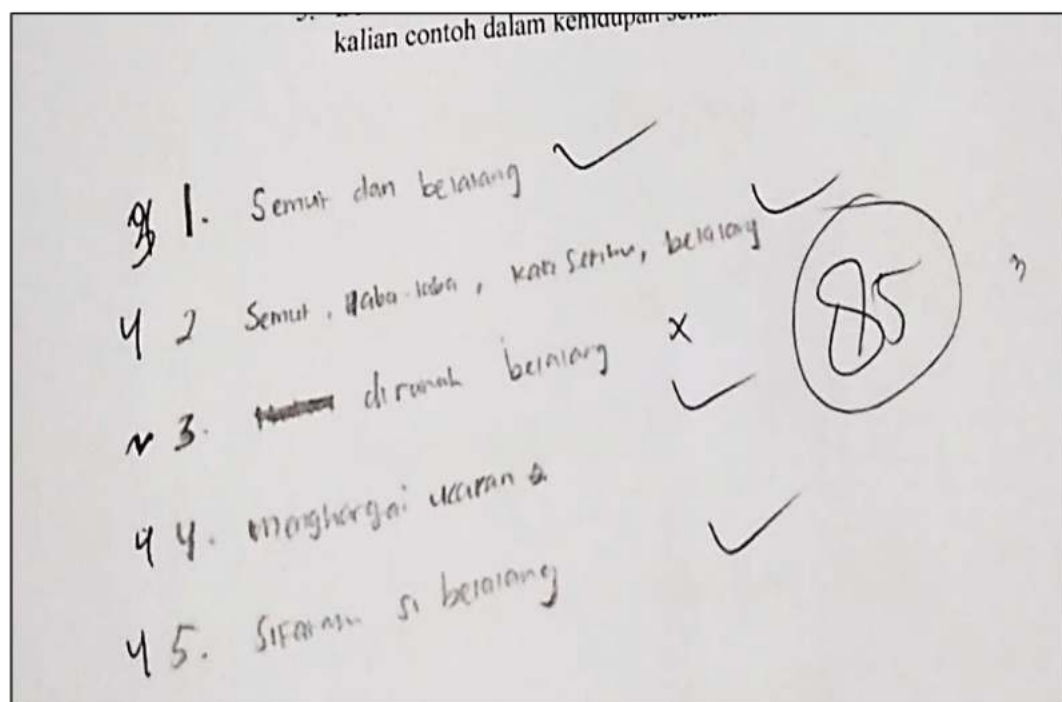 kalian contoh dalam kehidupan
1. Semut dan belalang
4 2 Semut, laba-laba, kaki seribu, belalang
3. dirumah belalang
4 4. menghargai ucapan
4 5. si belalang
85
3